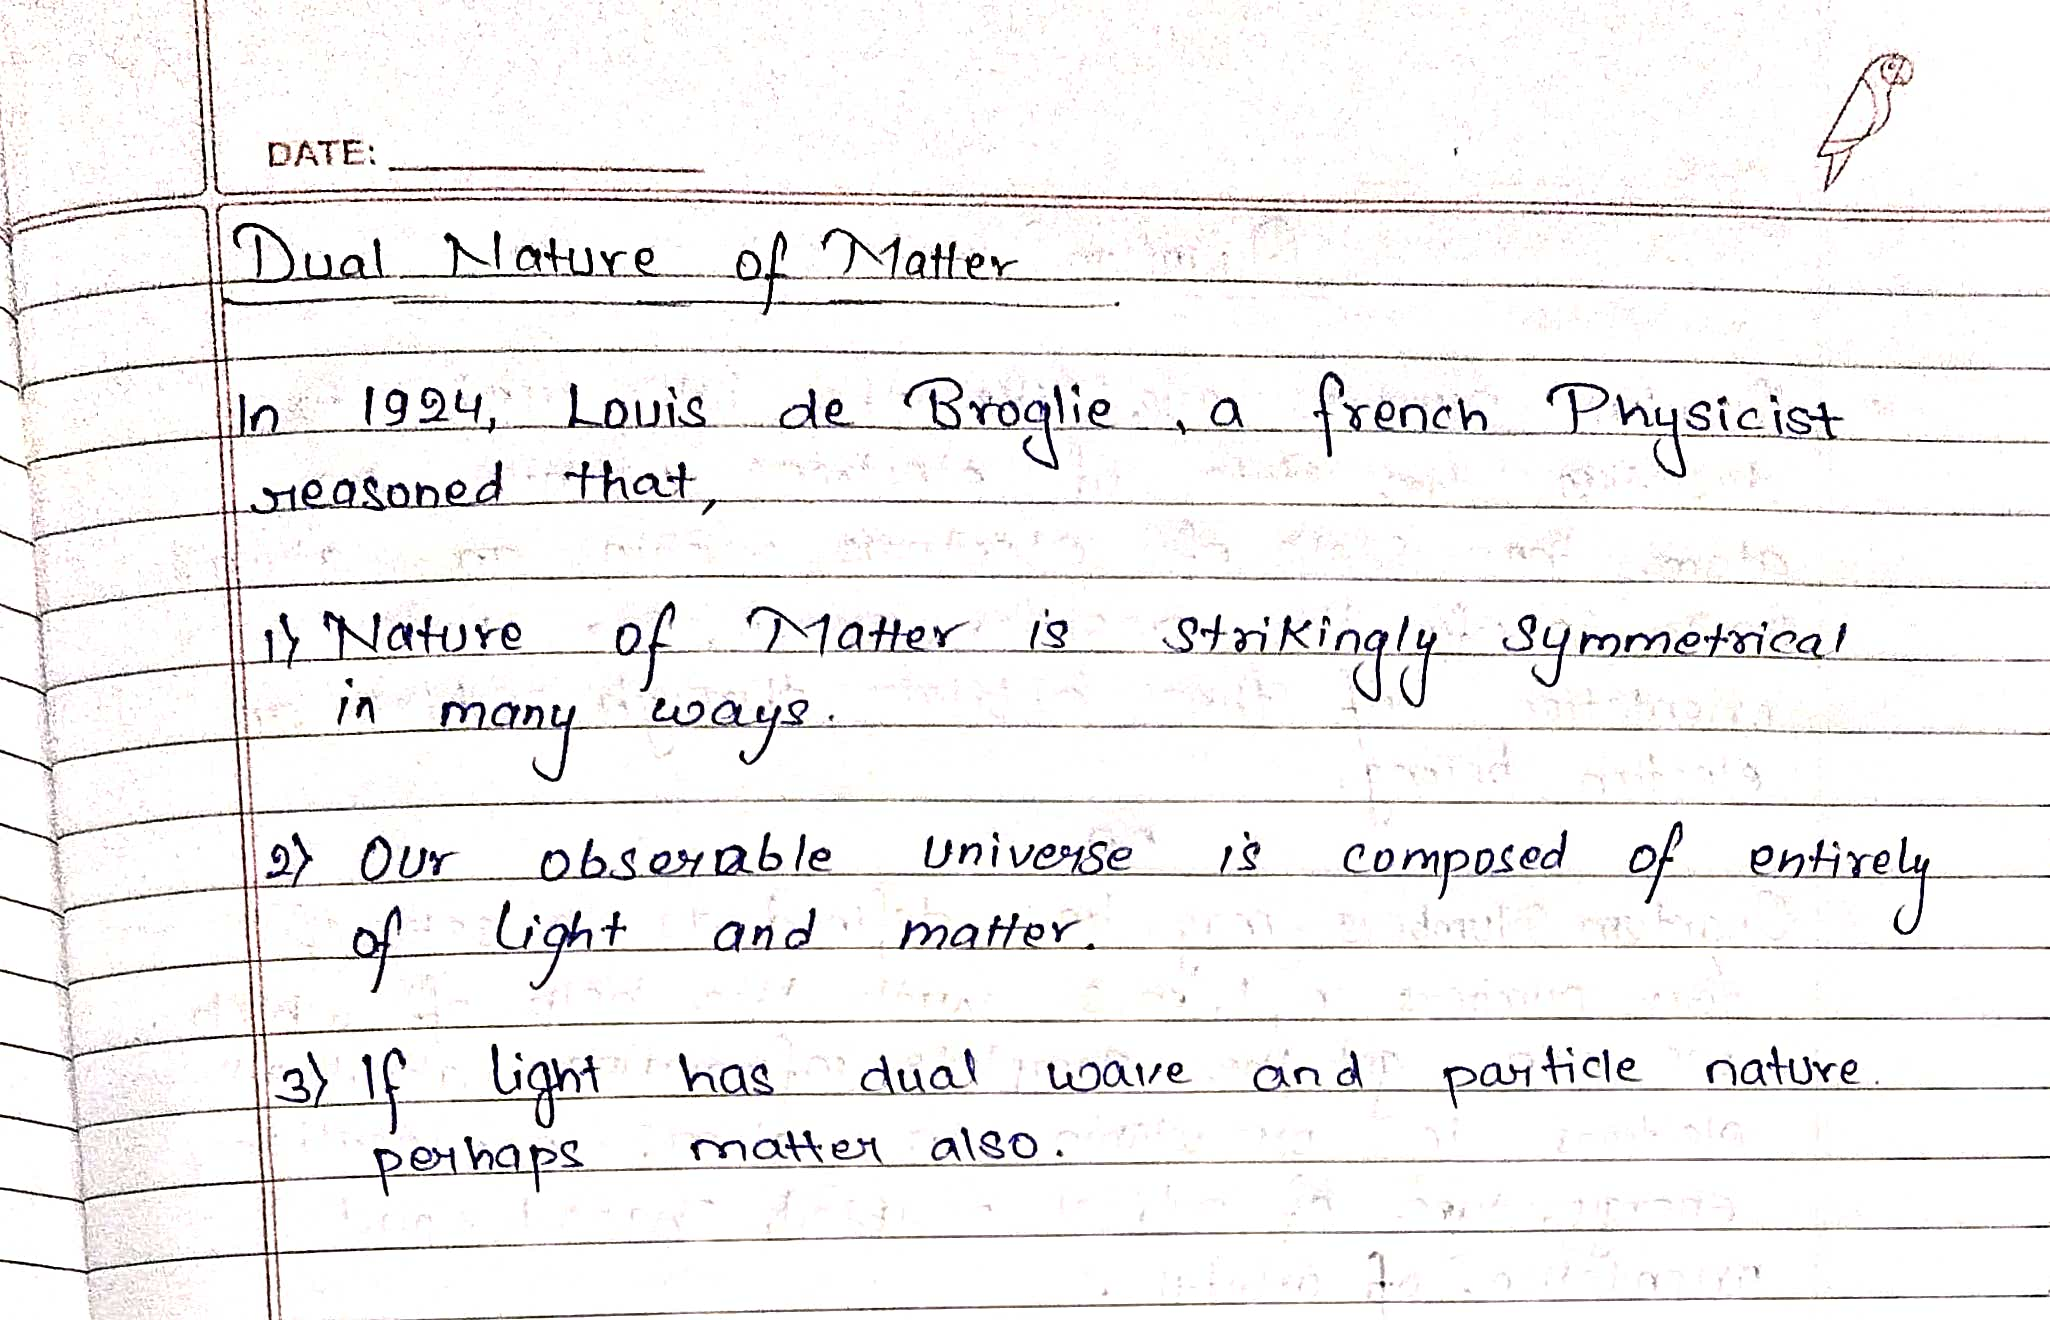 DATE:
Dual Nature of Matter
In 1924, Louis de Broglie, a french Physicist
reasoned that,
1) Nature of Matter is strikingly symmetrical
in many ways.
2) Our obserable universe is composed of entirely
of light and matter.
3) If light has dual wave and particle nature.
perhaps matter also.